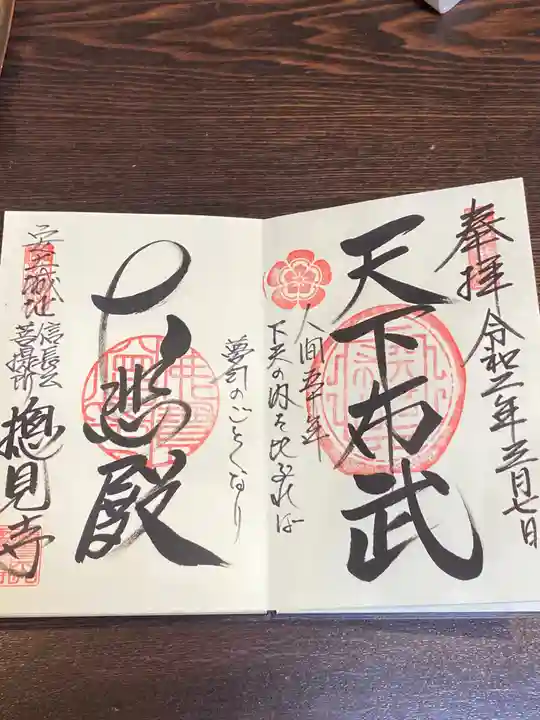 奉拝
令和二年三月七日
天下布武
人間五十年
下天の内を比ぶれば
夢幻のごとくなり
大悲殿
安土城址
信長公
菩提所
摠見寺